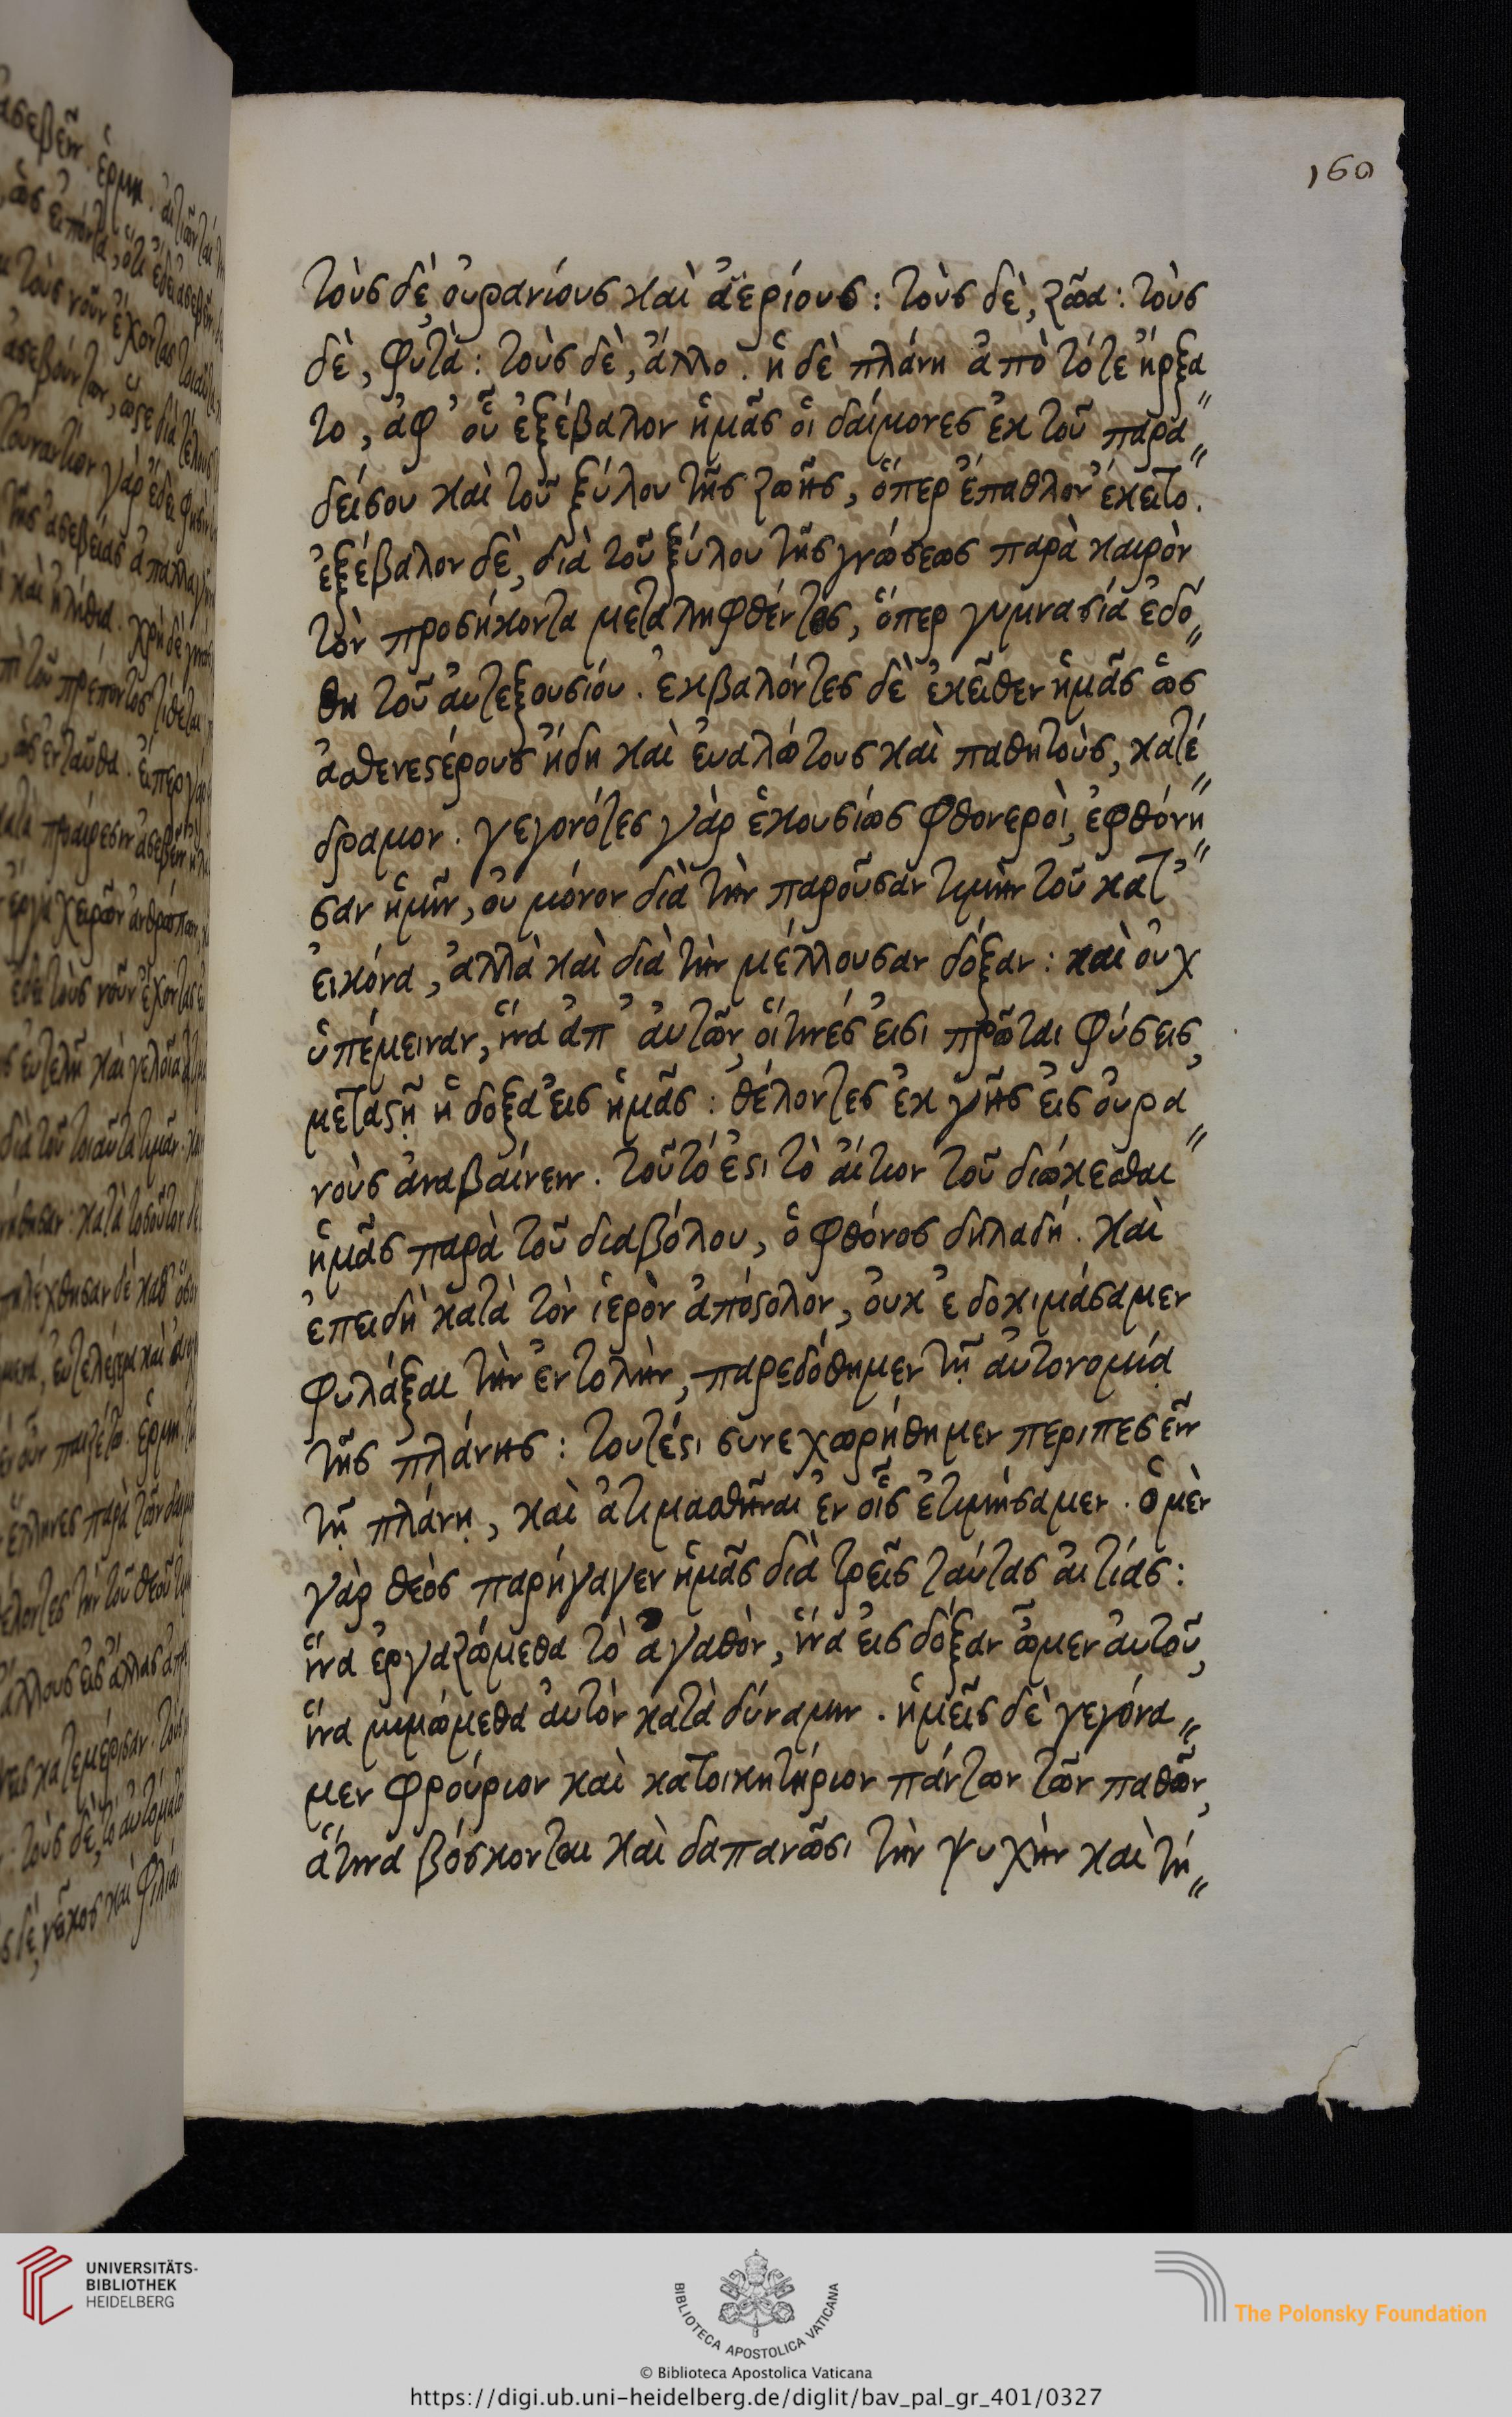 160
τοὺς δὲ, οὐρανίους καὶ ἀερίους : τοὺς δὲ, ζῶα : τοὺς
δὲ, φυτὰ : τοὺς δὲ, ἄλλο . ἡ δὲ πλάνη ἀπὸ τότε ἤρξα〃
το, ἀφ' οὗ ἐξέβαλον ἡμᾶς οἱ δαίμονες ἐκ τοῦ παρα〃
δείσου καὶ τοῦ ξύλου τῆς ζωῆς, ὅπερ ἔπαθλον ἔκειτο.
ἐξέβαλον δὲ, διὰ τοῦ ξύλου τῆς γνώσεως παρὰ καιρὸν
τὸν προσήκοντα μεταληφθέντες, ὅπερ γυμνασία ἐδό〃
θη τοῦ αὐτεξουσίου . ἐκβαλόντες δὲ ἐκεῖθεν ἡμᾶς ὡς
ἀσθενεστέρους ἤδη καὶ ἐυαλώτους καὶ παθητοὺς, κατέ〃
δραμον . γεγονότες γὰρ ἑκουσίως φθονεροὶ, ἐφθόνη〃
σαν ἡμῖν, οὐ μόνον διὰ τὴν παροῦσαν τιμὴν τοῦ κατ'
εἰκόνα, ἀλλὰ καὶ διὰ τὴν μέλλουσαν δόξαν : καὶ οὐχ
ὑπέμειναν, ἵνα ἀπ' αὐτῶν, οἵτινές εἰσι πρῶται φύσεις,
μεταστῇ ἡ δόξα εἰς ἡμᾶς : θέλοντες ἐκ γῆς εἰς οὐρα〃
νοὺς ἀναβαίνειν . τοῦτό ἐστι τὸ αἴτιον τοῦ διώκεσθαι
ἡμᾶς παρὰ τοῦ διαβόλου, ὁ φθόνος δηλαδή . καὶ
ἐπειδὴ κατὰ τὸν ἱερὸν ἀπόστολον, οὐκ ἐδοκιμάσαμεν
φυλάξαι τὴν ἐντολὴν, παρεδόθημεν τῇ αὐτονομίᾳ
τῆς πλάνης : τουτέστι συνεχωρήθημεν περιπεσεῖν
τῇ πλάνῃ, καὶ ἀτιμασθῆναι ἐν οἷς ἐτιμήσαμεν . ὁ μὲν
γὰρ θεὸς παρήγαγεν ἡμᾶς διὰ τρεῖς ταύτας αἰτίας :
ἵνα ἐργαζώμεθα τὸ ἀγαθὸν, ἵνα εἰς δόξαν ὦμεν αὐτοῦ,
ἵνα μιμώμεθα αὐτὸν κατὰ δύναμιν . ἡμεῖς δὲ γεγόνα〃
μεν φρούριον καὶ κατοικητήριον πάντων τῶν παθῶν,
ἅτινα βόσκονται καὶ δαπανῶσι τὴν ψυχὴν καὶ τή〃
UNIVERSITÄTS-
BIBLIOTHEK
HEIDELBERG
BIBLIOTECA APOSTOLICA VATICANA
The Polonsky Foundation
© Biblioteca Apostolica Vaticana
https://digi.ub.uni-heidelberg.de/diglit/bav_pal_gr_401/0327